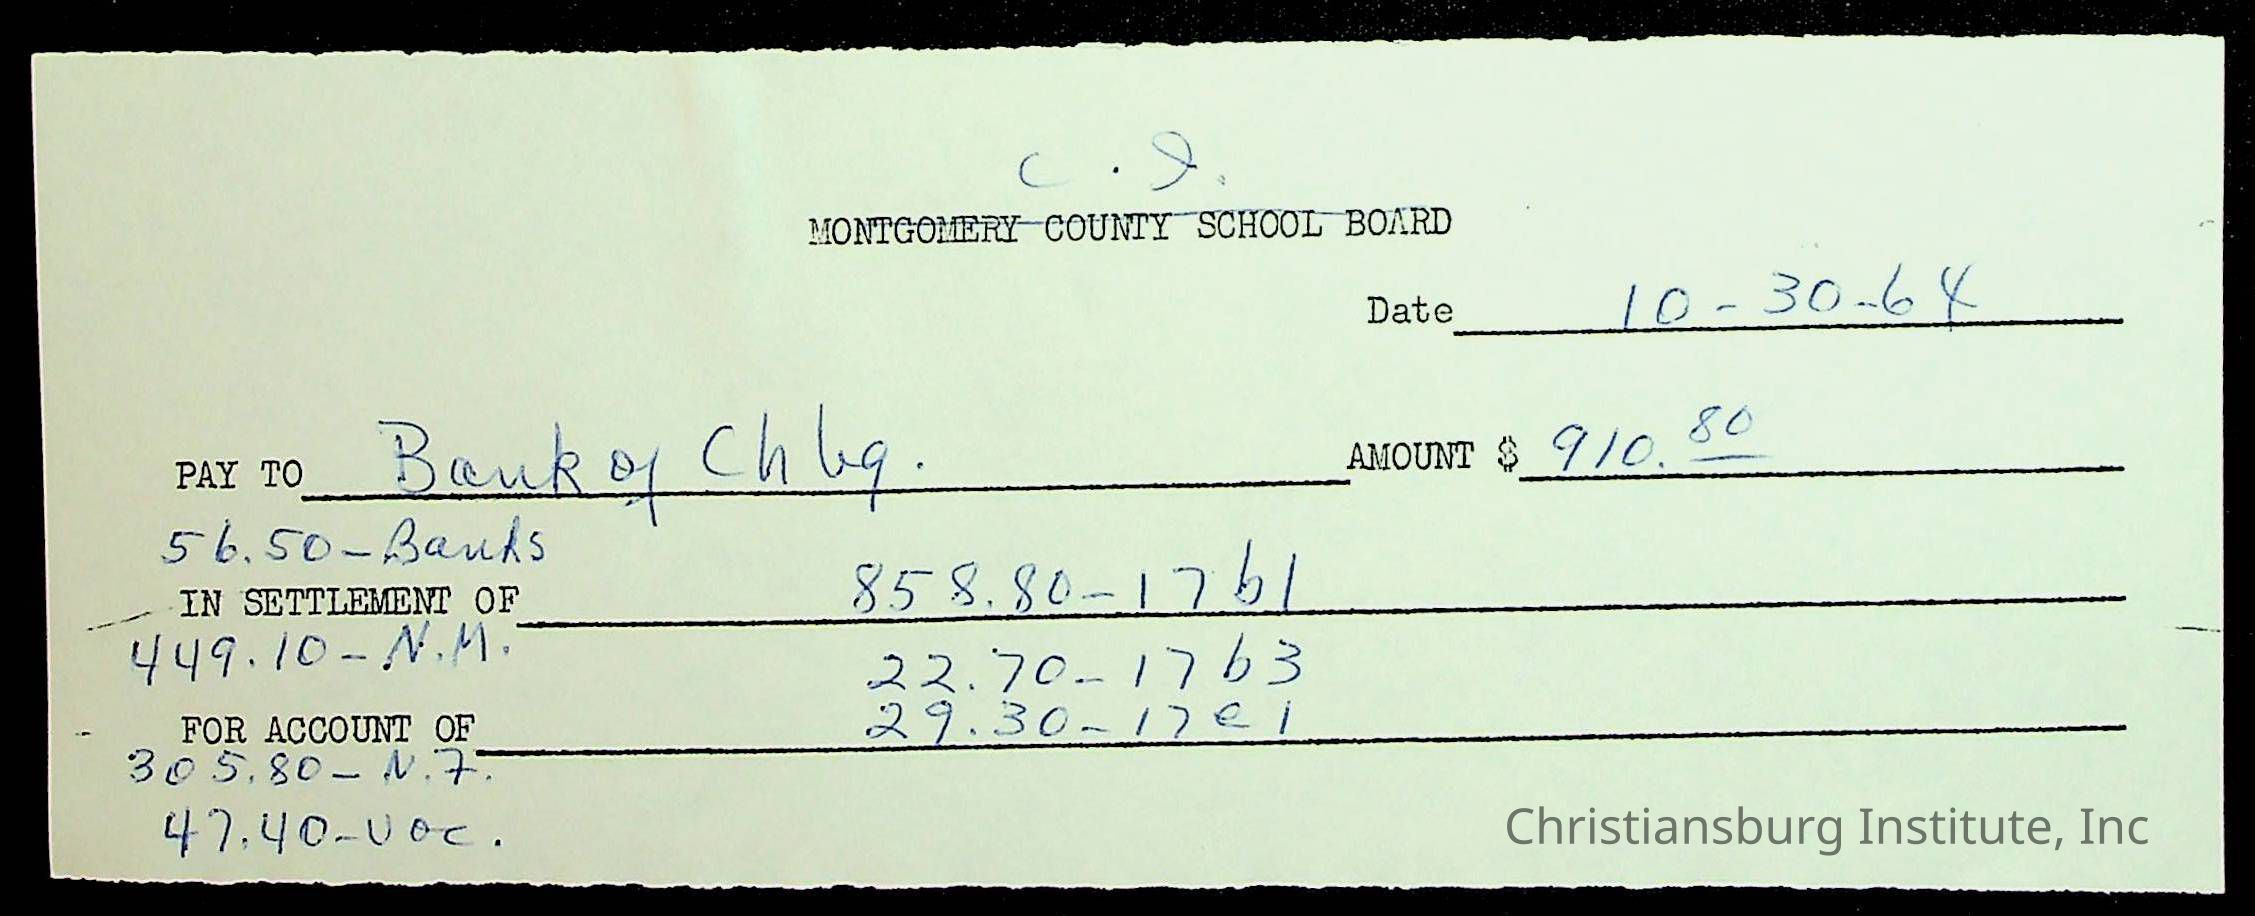 C. I.
MONTGOMERY COUNTY SCHOOL BOARD
Date 10-30-64
PAY TO Bank of Chbg. AMOUNT $ 910.80
56.50-Banks
IN SETTLEMENT OF 858.80-17b1
449.10-N.M.
22.70-17b3
FOR ACCOUNT OF 29.30-17e1
305.80-N.F.
47.40-Voc.
Christiansburg Institute, Inc